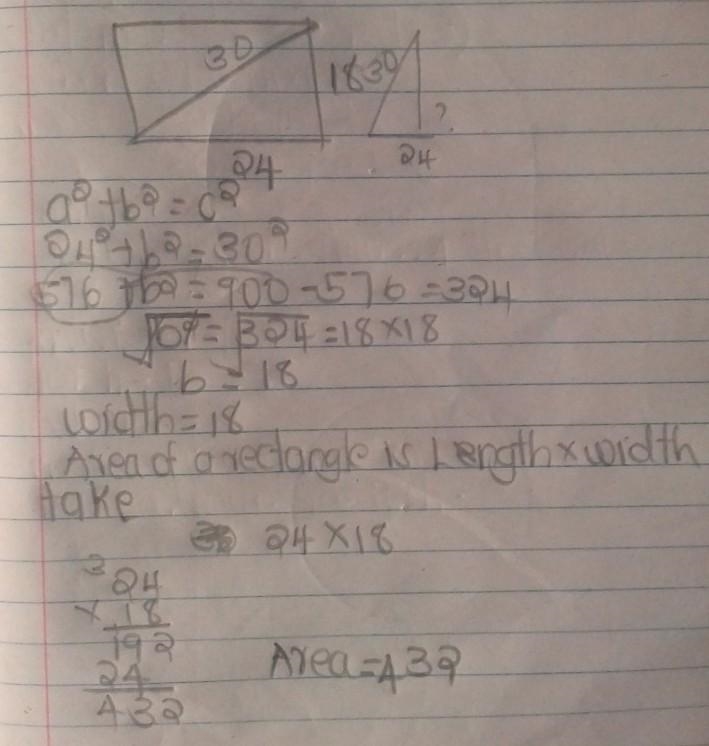 30
18 30
?
24 24
a² + b² = c²
24² + b² = 30²
576 + b² = 900 - 576 = 324
√b² = √324 = 18 × 18
b = 18
width = 18
Area of a rectangle is Length × width
take
24 × 18
3
24
× 18
192
24
432
Area = 432